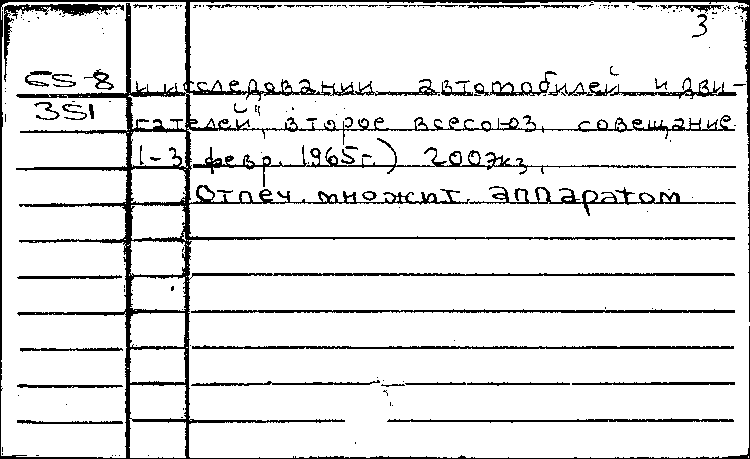 3
65-8 и исследовании автомобилей и дви-
351 гателей", второе всесоюз. совещание
1-3 февр. 1965г.) 200экз.
Отпеч. множит. аппаратом